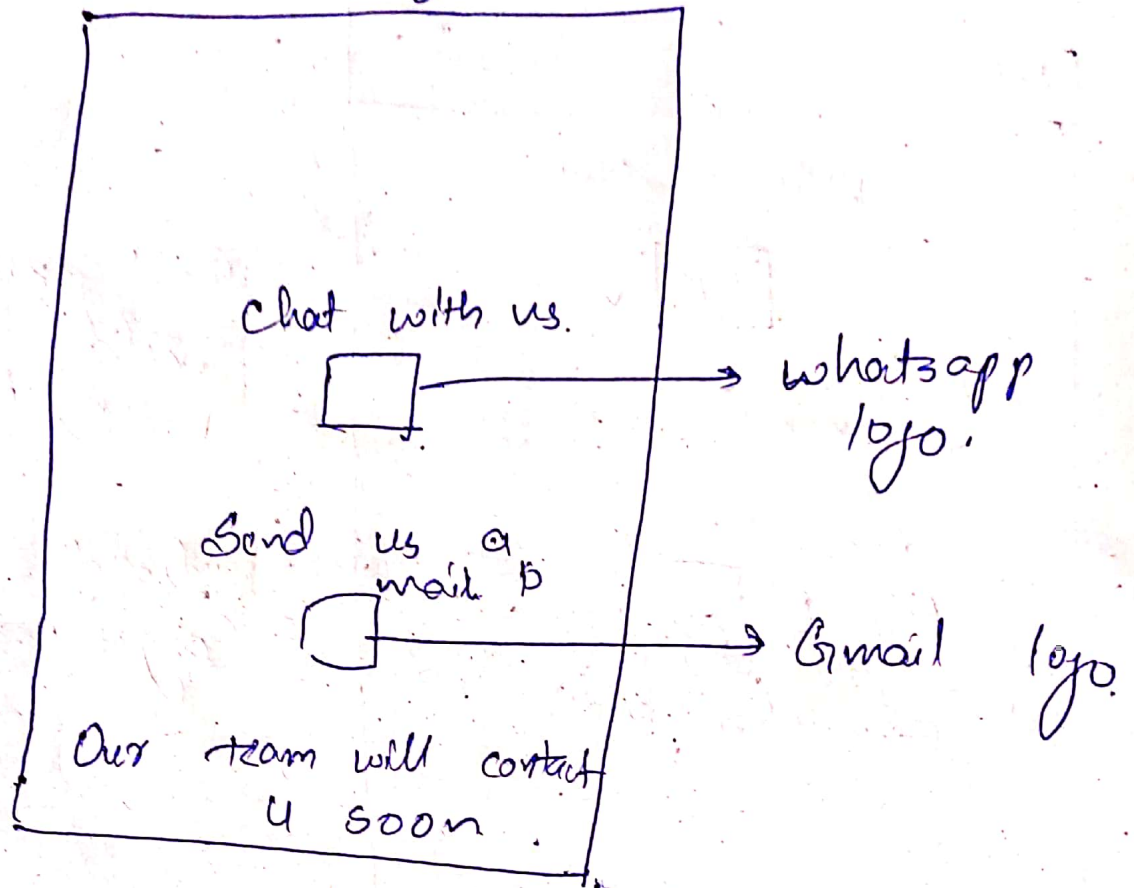 Chat with us.
whatsapp
logo.
Send us a
mail
Gmail logo.
Our team will contact
u soon.